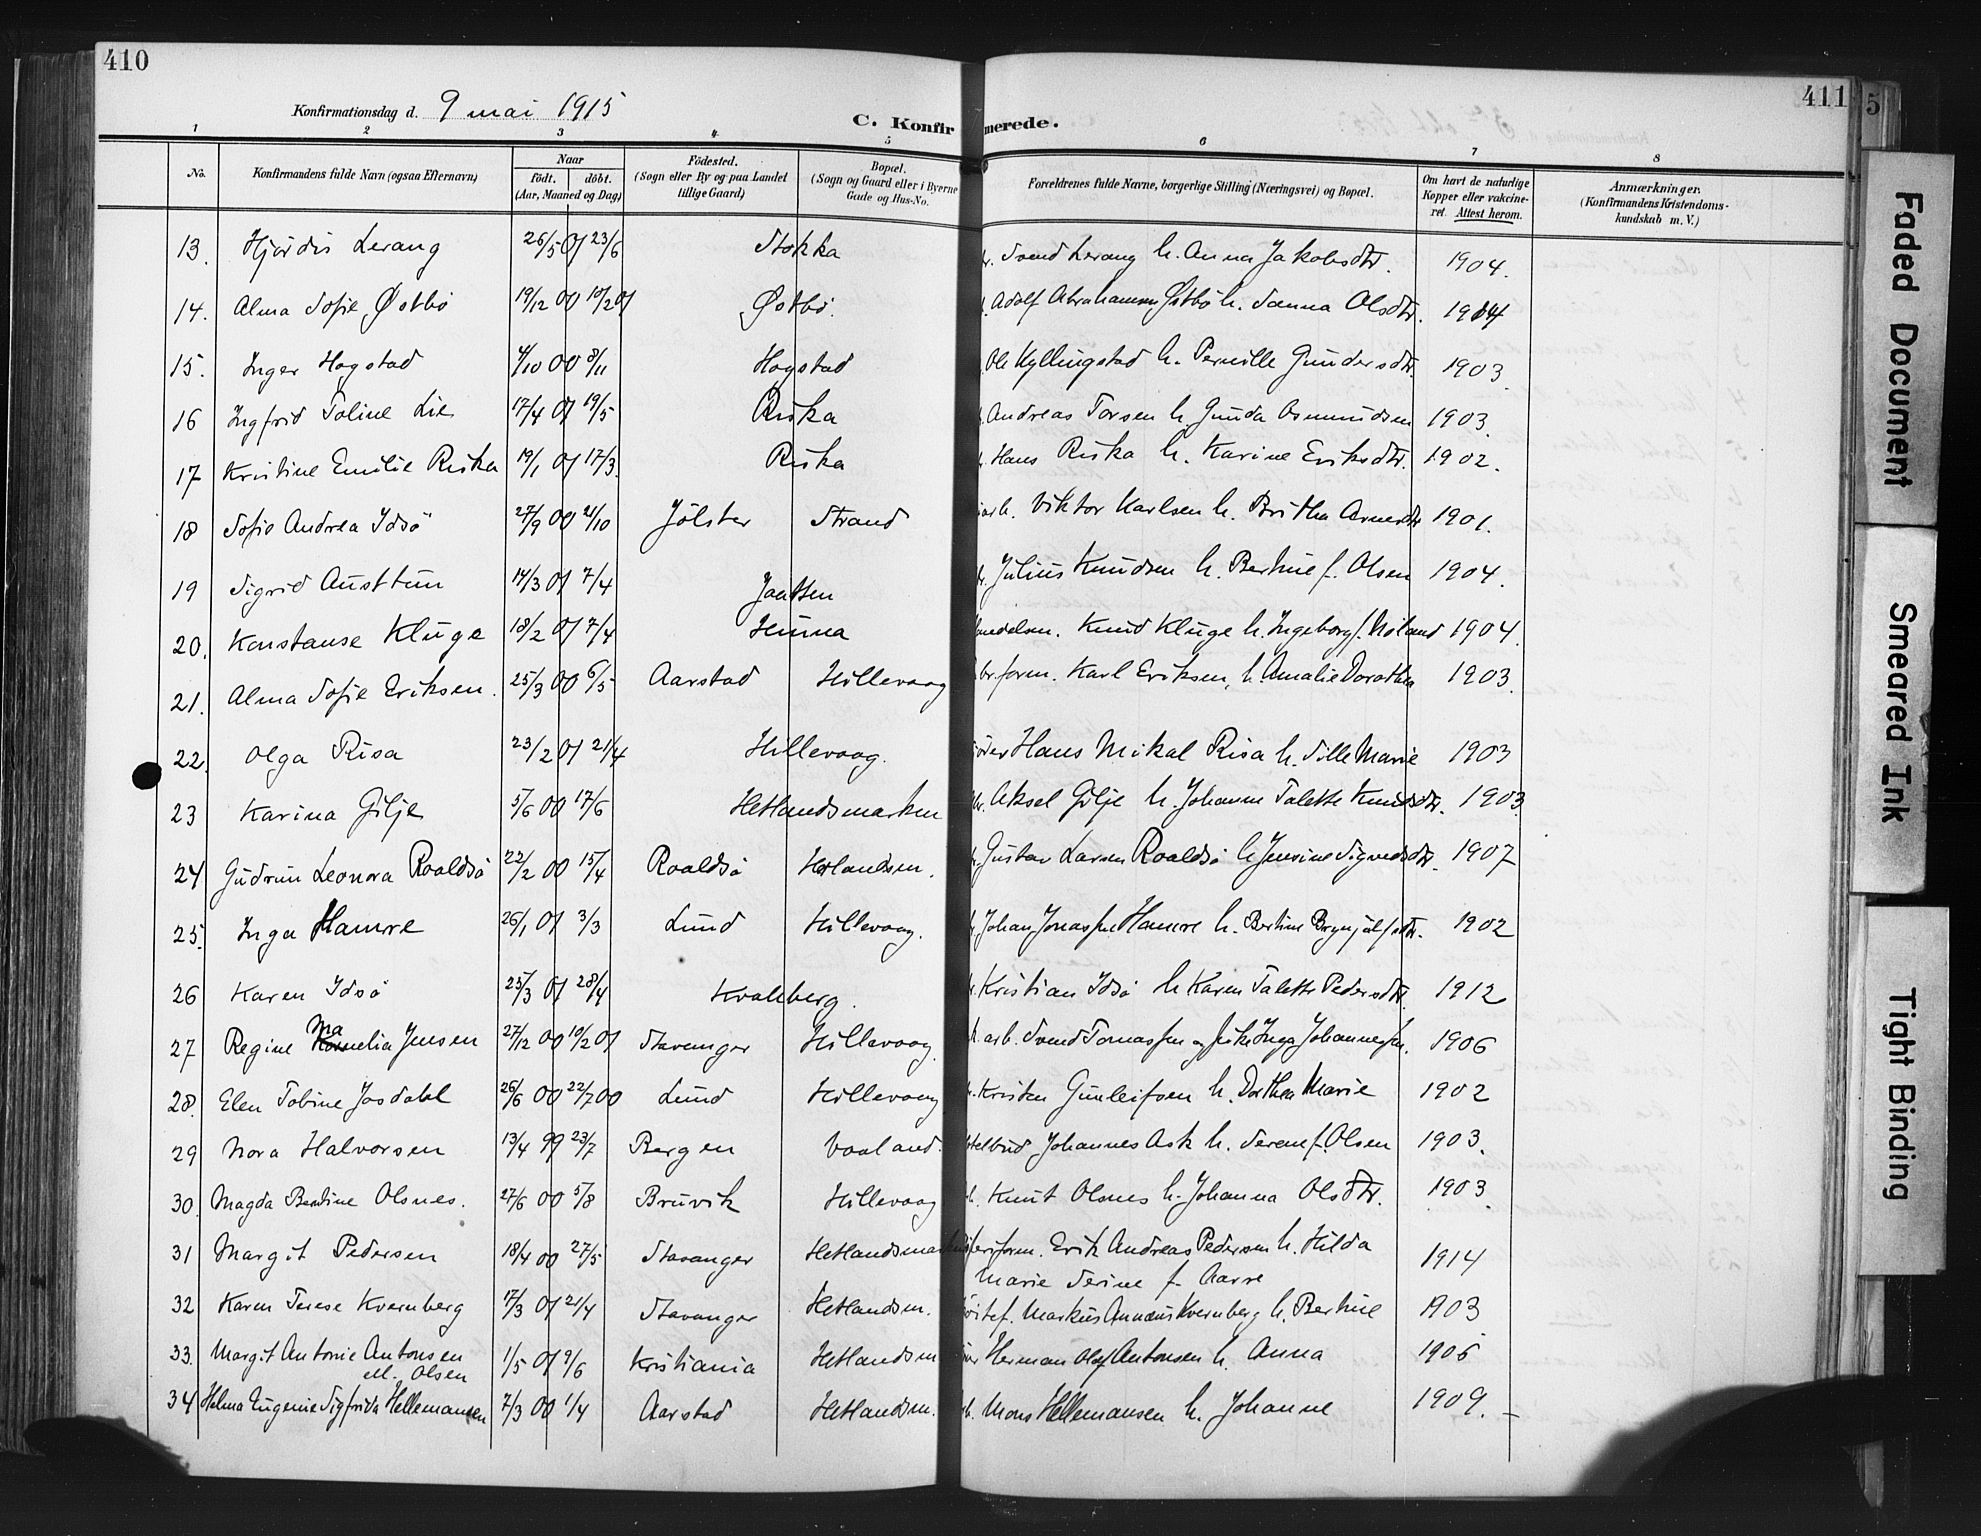 410
411
5
Konfirmationsdag d. 9 mai 1915
C. Konfirmerede.
1 2 3 4 5 6 7 8
No.
Konfirmandens fulde Navn (ogsaa Efternavn)
Naar
født. døbt.
(Aar, Maaned og Dag)
Fødested.
(Sogn eller By og paa Landet
tillige Gaard)
Bopæl.
(Sogn og Gaard eller i Byerne
Gade og Hus-No.
Forældrenes fulde Navne, borgerlige Stilling (Næringsvei) og Bopæl.
Om havt de naturlige
Kopper eller vakcine-
ret. Attest herom.
Anmærkninger.
(Konfirmandens Kristendoms-
kundskab m. V.)
13. Hjördis Lerang 26/5 01 23/6 Stokka Svend Lerang h. Anna Jakobsdtr. 1904.
14. Alma Sofie Østbö 19/12 00 10/2 01 Østbö. Adolf Abrahamsen Østbö h. Sanna Olsdtr. 1904
15. Inger Hogstad 4/10 00 8/11 Hogstad Ole Kyllingstad h. Pernille Gundersdtr. 1903.
16 Ingfrid Toline Lie 17/4 01 19/5 Riska Andreas Torsen h. Gunda Asmundsen 1903.
17 Kristine Emilie Riska 19/1 01 17/3. Riska Hans Riska h. Karine Eriksdtr. 1902.
18 Sofie Andrea Idsö 27/9 00 21/10 Jölster Strand arb. Viktor Karlsen h. Britha Arnesdtr 1901.
19 Sigrid Austtun 14/3 01 7/4 Jaatten Julius Knudsen h. Bertine f. Olsen 1904.
20. Konstanse Kluge 18/2 01 7/4 Hinna Knud Kluge h. Ingeborg f. Nöland 1904.
21. Alma Sofie Eriksen. 25/3 00 6/5 Aarstad Hillevaag form. Karl Eriksen, h. Amalie Dorothea 1903.
22. Olga Risa 23/2 01 21/4 Hillevaag. Hans Mikal Risa h. Sille Marie 1903
23 Karina Gilje 5/6 00 17/6 Hetlandsmarken Aksel Gilje h. Johanne Talette Knudsdtr. 1903
24 Gudrun Leonora Roaldsö 22/2 00 15/4 Roaldsö Hetlandsm. Gustav Larsen Roaldsö h. Jensine Sigvedsdtr. 1907
25. Inga Hamre 26/1 01 3/3 Lund Hillevaag. Johan Jonassen Hamre h. Bertine Brynjulfsdtr. 1902
26 Karen Idsö 25/3 01 28/4 Kvaleberg. Kristian Idsö h Karen Talette Pedersdtr. 1912
27 Regine Ma Kornelia Jensen 27/12 00 10/2 01 Stavanger Hillevaag. arb. Svend Tomassen og Inga Johannessen. 1906
28. Elen Tobine Josdahl 26/6 00 22/7 00 Lund Hillevaag Kristen Gunleifsen h. Dorthea Marie 1902
29 Nora Halvorsen 13/4 99 23/7 Bergen Vaaland. Johannes Ask h. Serene f. Olsen 1903.
30. Magda Bertine Olsnes. 27/6 00 5/8 Bruvik Hillevaag Knut Olsnes h. Johanna Olsdtr. 1903.
31 Margit Pedersen 18/4 00 27/5 Stavanger Hetlandsmarken form. Erik Andreas Pedersen h. Hilda 1914
Marie Serine f. Aarre
32 Karen Terese Kvernberg 17/3 01 21/4 Stavanger Hetlandsm. Markus Annæus Kvernberg h. Bertine 1903
33. Margit Antonie Antonsen 1/5 01 9/6 Kristiania Hetlandsm Herman Olaf Antonsen h. Anna 1905
ell. Olsen
34 Helma Eugenie Sigfrida Hellemansen 7/3 00 1/4 Aarstad Hetlandsm. Mons Hellemansen h. Johanne 1909. –
Faded Document
Smeared Ink
Tight Binding